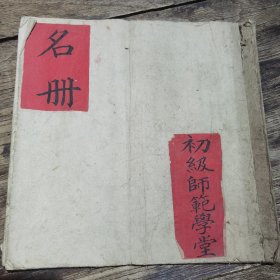 名册
初級師範學堂